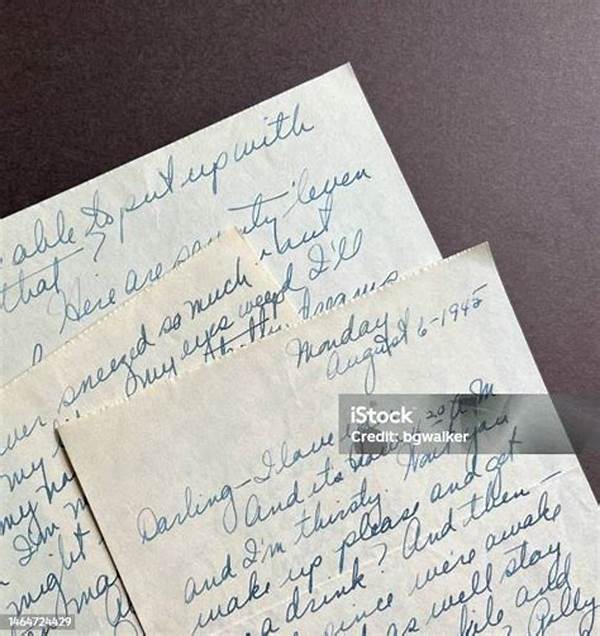 able to put up with
that?
Here are seventy 'leven
but
I'll
dreams
ever sneezed so much
my eyes
my
my
I'm
might
Monday
August 6-1945
Darling - I love
And its
and I'm thirsty. Won't you
wake up please and get
a drink? And then -
since we're awake
as well stay
and
iStock
Credit: bgwalker
1464724429